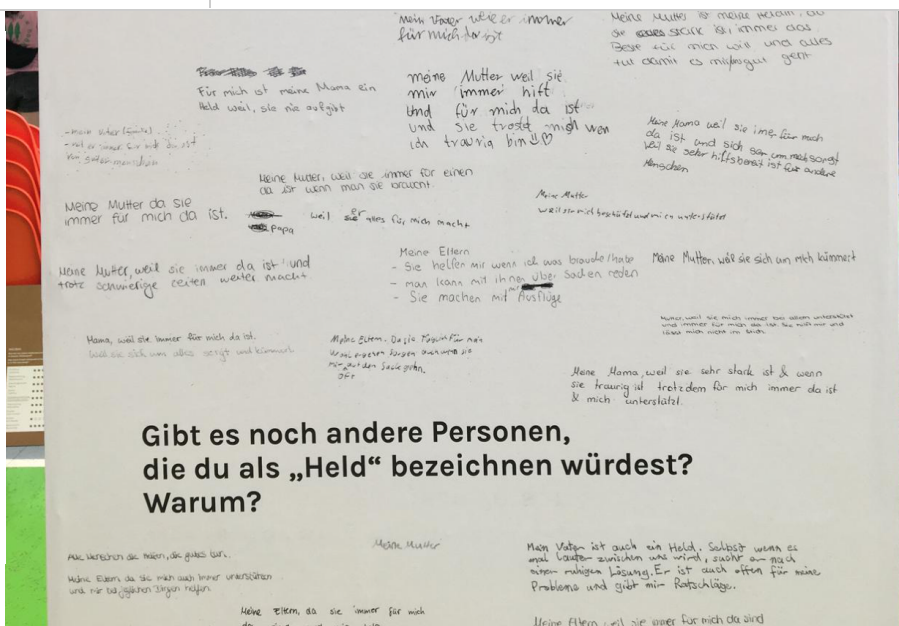 Mein Vater weil er immer
für mich da ist
Meine Mutter ist meine Heldin, da
sie stark ist, immer das
Beste für mich will und alles
tut damit es mir gut geht
Für mich ist meine Mama ein
Held weil, sie nie aufgibt
meine Mutter weil sie
mir immer hift
Und für mich da ist
und sie trosd mich wen
ich traurig bin
Meine Mama weil sie imer für mich
da ist und sich ser um mich sorgt
weil sie sehr hilfsbereit ist für andere
Menschen
Meine Mutter, weil sie immer für einen
da ist wenn man sie braucht.
Meine Mutter da sie
immer für mich da ist.
Papa
weil er alles für mich macht
Meine Mutter
weil sie mich beschützt und mich unterstützt
Meine Mutter, weil sie immer da ist und
trotz schwierige zeiten weiter macht
Meine Eltern
- Sie helfen mir wenn ich was brauche/habe
- man kann mit ihnen über Sachen reden
- Sie machen mit Ausflüge
Meine Mutter, weil sie sich um mich kümmert
Mutter, weil sie mich immer bei allem unterstützt
und immer für mich da ist. Sie hilft mir und
lässt mich nicht im Stich
Mama, weil sie immer für mich da ist.
Weil sie sich um alles sorgt und kümmert
Meine Eltern. Da sie täglich für
sorgen auch wenn sie
mir auf den Sack gehn.
oft
Meine Mama, weil sie sehr stark ist & wenn
sie traurig ist trotzdem für mich immer da ist
& mich unterstützt.
Gibt es noch andere Personen,
die du als „Held“ bezeichnen würdest?
Warum?
Alle Menschen die helfen, die gutes tun.
Meine Eltern da sie mich auch immer unterstützen
und mir bei Dingen helfen.
Meine Mutter
Mein Vater ist auch ein Held. Selbst wenn es
mal lauter zwischen uns wird, sucht er nach
einer ruhigen Lösung. Er ist auch offen für meine
Probleme und gibt mir Ratschläge.
Meine Eltern, da sie immer für mich
Meine Eltern, weil sie immer für mich da sind